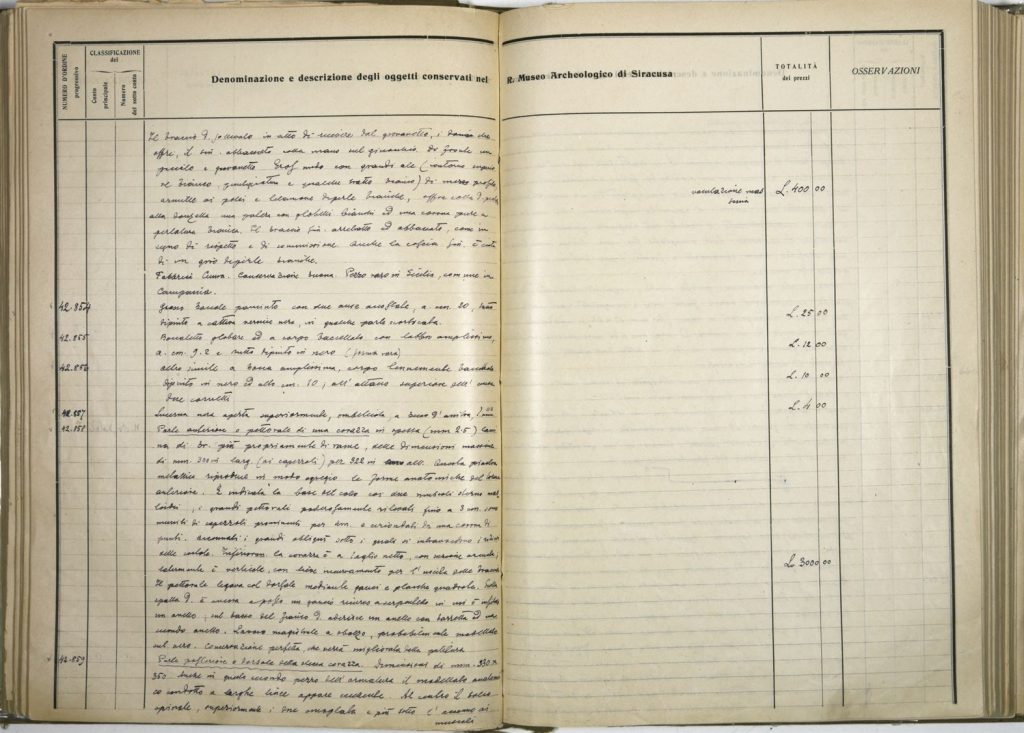 NUMERO D'ORDINE progressivo
CLASSIFICAZIONE del
Conto principale
Numero del sotto conto
Denominazione e descrizione degli oggetti conservati nel R. Museo Archeologico di Siracusa
TOTALITÀ dei prezzi
OSSERVAZIONI
Il braccio d. sollevato in atto di ricevere dal giovanotto, i doni che
offre, il sin. abbassato colla mano sul ginocchio. Di fronte un
giovanetto Eros nudo con grandi ale (contorno
e qualche tratto bianco) di mezzo profilo
armille ai polsi e bianche, offre colla d.
alla donzella una patera con globetti bianchi ed una corona pure a
perlatura bianca. Il braccio sin. ed abbassato, come in
segno di rispetto e di commissione. Anche la coscia sin. è cinta
di un giro di perle bianche.
Fabbrica Cuma. Conservazione buona. Pezzo raro in Sicilia, comune in
Campania.
L. 400 00
42.854 Grosso boccale panciuto con due anse a cm. 20, tutto
dipinto a cattiva vernice nera, in qualche parte
L. 25 00
42.855 Boccaletto globare ed a corpo baccellato con labbro amplissimo,
a. cm. 9.2 e tutto dipinto in nero (forma rara)
L. 12 00
42.856 Altro simile a bocca amplissima, corpo baccellato
dipinto in nero ed alto cm. 10, all'attacco superiore dell'ansa
due cornetti
L. 10 00
42.857 Lucerna nera aperta superiormente, ombelicata, a
L. 4 00
42.858 Parte anteriore o pettorale di una corazza in spessa (mm 2.5) lami
na di br. più propriamente di rame, delle dimensioni massime
di mm. larg. (ai capezzoli) per 322 in all. Questa piastra
metallica riproduce in modo egregio le forme anatomiche del torace
anteriore. È indicata la base del collo coi due muscoli sterno mas
toidei, i grandi pettorali poderosamente rilevati fino a 3 cm. sono
muniti di capezzoli prominenti per mm. e circondati da una corona di
punti. Accennati i grandi obliqui sotto i quali si intravvedono i rilievi
delle costole. Inferiorm. la corazza è a taglio netto, con sezione arcuata,
lateralmente è verticale, con lieve incurvamento per l'uscita delle braccia.
Il pettorale legava col dorsale mediante ganci e placche quadrate. Sulla
spalla d. è ancora a posto un gancio in cui è infilato
un anello; sul basso del fianco d. aderisce un anello con barretta ed un
secondo anello. Lavoro magistrale a sbalzo, probabilmente modellato
sul vero. Conservazione perfetta, che verrà migliorata dalla pulitura
L. 3000 00
42.859 Parte posteriore o dorsale della stessa corazza. Dimensioni di mm. 330 x
350 Anche in questo secondo pezzo dell'armatura il modellato anatomi
co condotto a larghe linee appare eccellente. Al centro il solco
spinale, superiormente i due e più sotto l'
muscoli